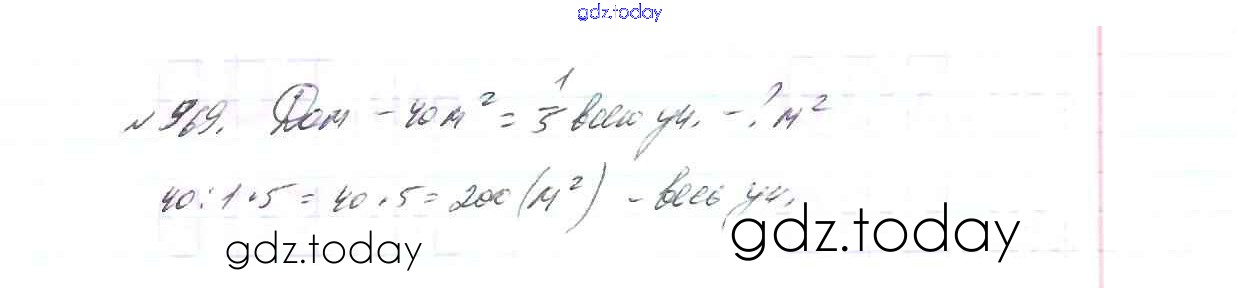 gdz.today
№ 969. Дом - 40 м² = 1/5 всего уч. - ? м²
40 : 1 · 5 = 40 · 5 = 200 (м²) - весь уч.
gdz.today gdz.today